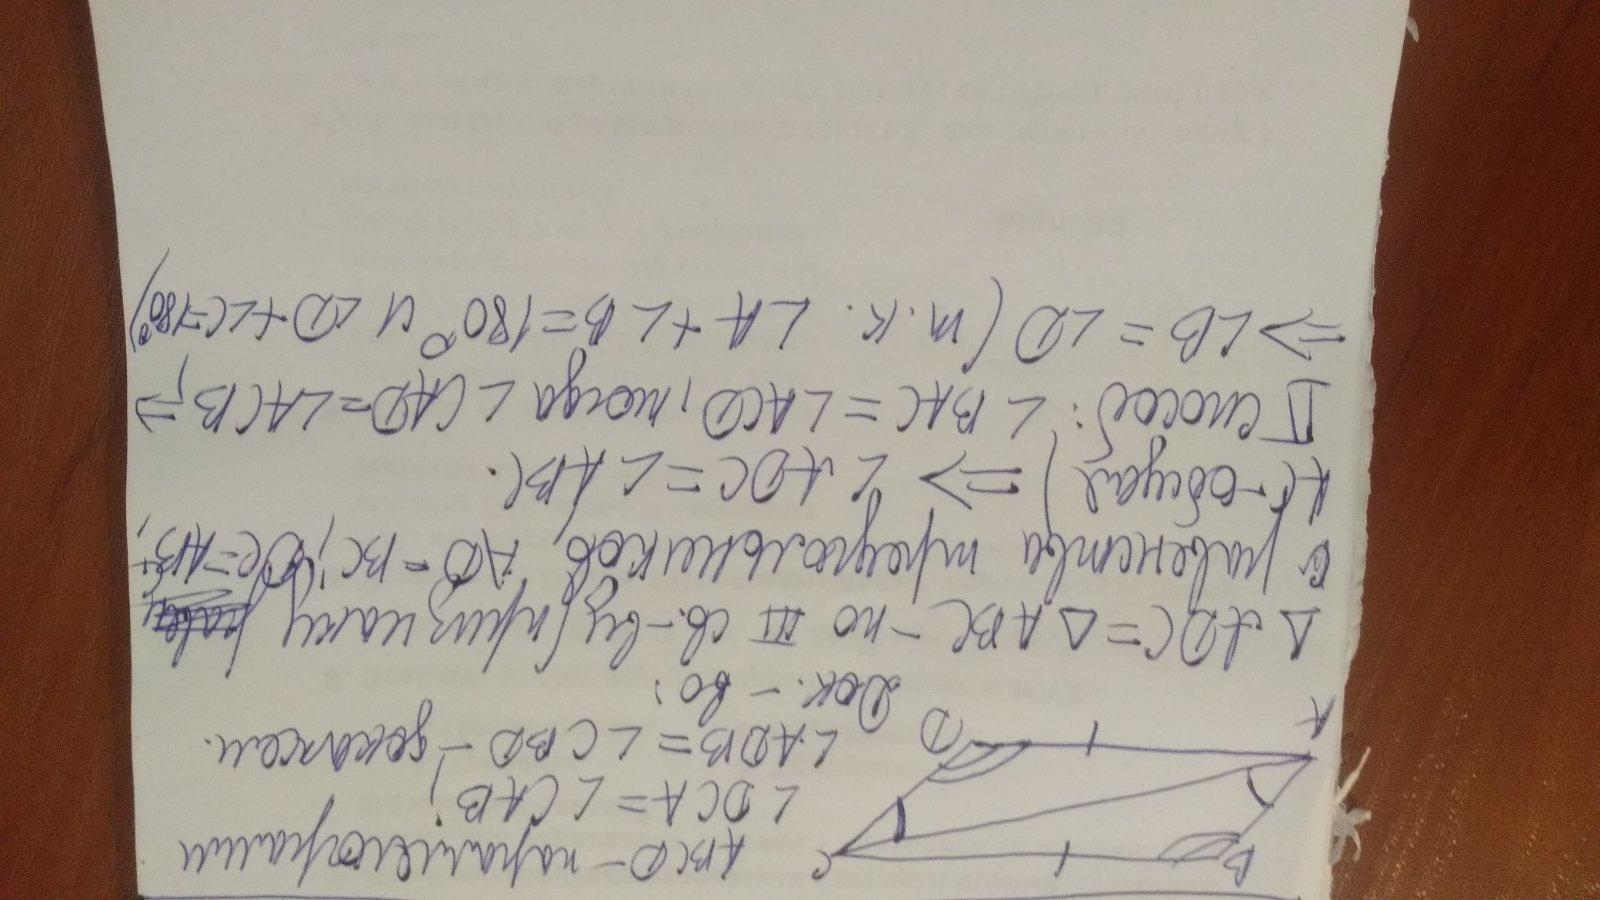 B
C
A
D
ABCD - параллелограмм
∠DCA = ∠CAB;
∠ADB = ∠CBD - докажем.
Док. - во:
△ ADC = △ ABC - по III св.-ву (признаку
равенства треугольников, AD = BC; DC = AB;
AC - общая) => ∠ADC = ∠ABC.
II способ: ∠BAC = ∠ACD, тогда ∠CAD = ∠ACB, =>
=> ∠B = ∠D (т.к. ∠A + ∠B = 180° и ∠D + ∠C = 180°)